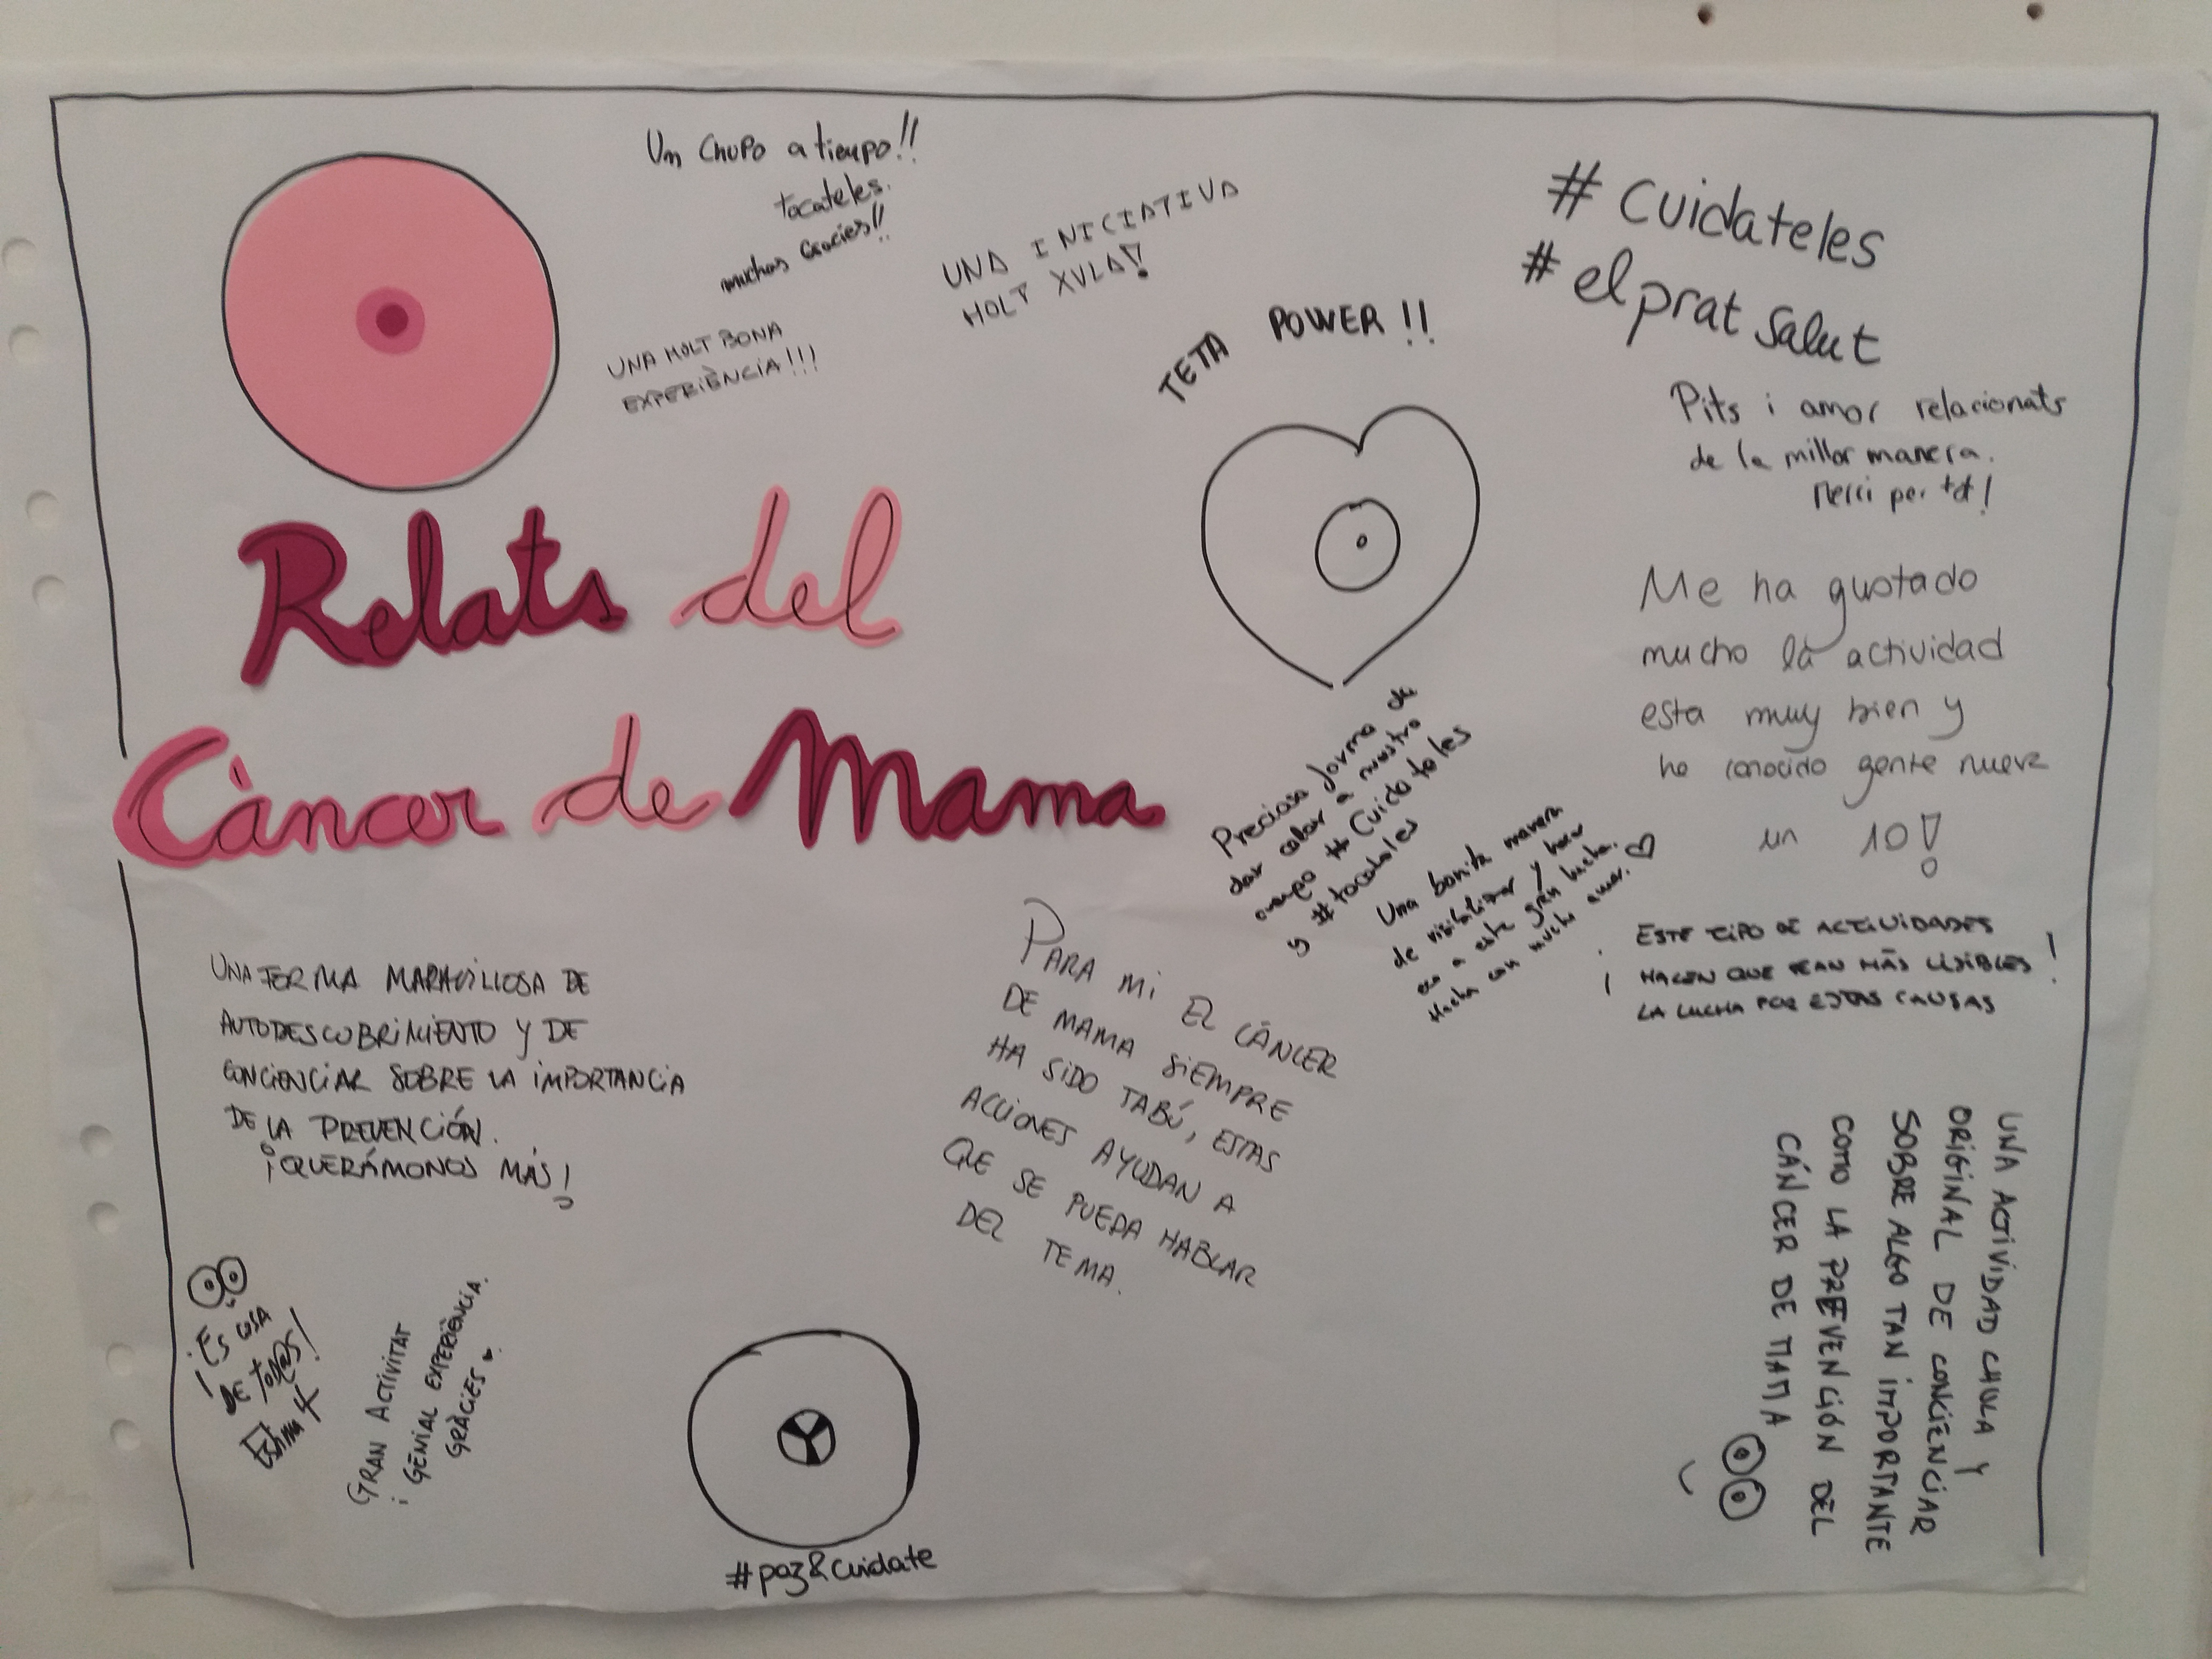 Un chupo a tiempo!!
tocateles.
muchas Gracies!!
UNA INICIATIVA
MOLT XULA!
UNA MOLT BONA
EXPERIÈNCIA!!!
TETA POWER!!
# cuidateles
# el prat salut
Pits i amor relacionats
de la millor manera.
Merci per tot!
Relats del
Càncer de Mama
Me ha gustado
mucho la actividad
esta muy bien y
he conocido gente nueva
un 10!
Preciosa forma de
dar color a nuestro
cuerpo # Cuidateles
y # tocateles
Una bonita manera
de visibilizar y hacer
eco a este gran lucha.
Mucha con mucho amor. ♡
ESTE TIPO DE ACTIVIDADES
¡HACEN QUE SEAN MÁS VISIBLES!
LA LUCHA POR ESTAS CAUSAS
UNA FORMA MARAVILLOSA DE
AUTODESCUBRIMIENTO Y DE
CONCIENCIAR SOBRE LA IMPORTANCIA
DE LA PREVENCIÓN.
¡QUERÁMONOS MÁS!
PARA MI EL CÁNCER
DE MAMA SIEMPRE
HA SIDO TABÚ, ESTAS
ACCIONES AYUDAN A
QUE SE PUEDA HABLAR
DEL TEMA.
UNA ACTIVIDAD CHULA Y
ORIGINAL DE CONCIENCIAR
SOBRE ALGO TAN IMPORTANTE
COMO LA PREVENCIÓN DEL
CÁNCER DE MAMA
¡ES COSA
DE TOD@S!
GRAN ACTIVITAT
i GENIAL EXPERIÈNCIA.
GRÀCIES
#paz&cuidate